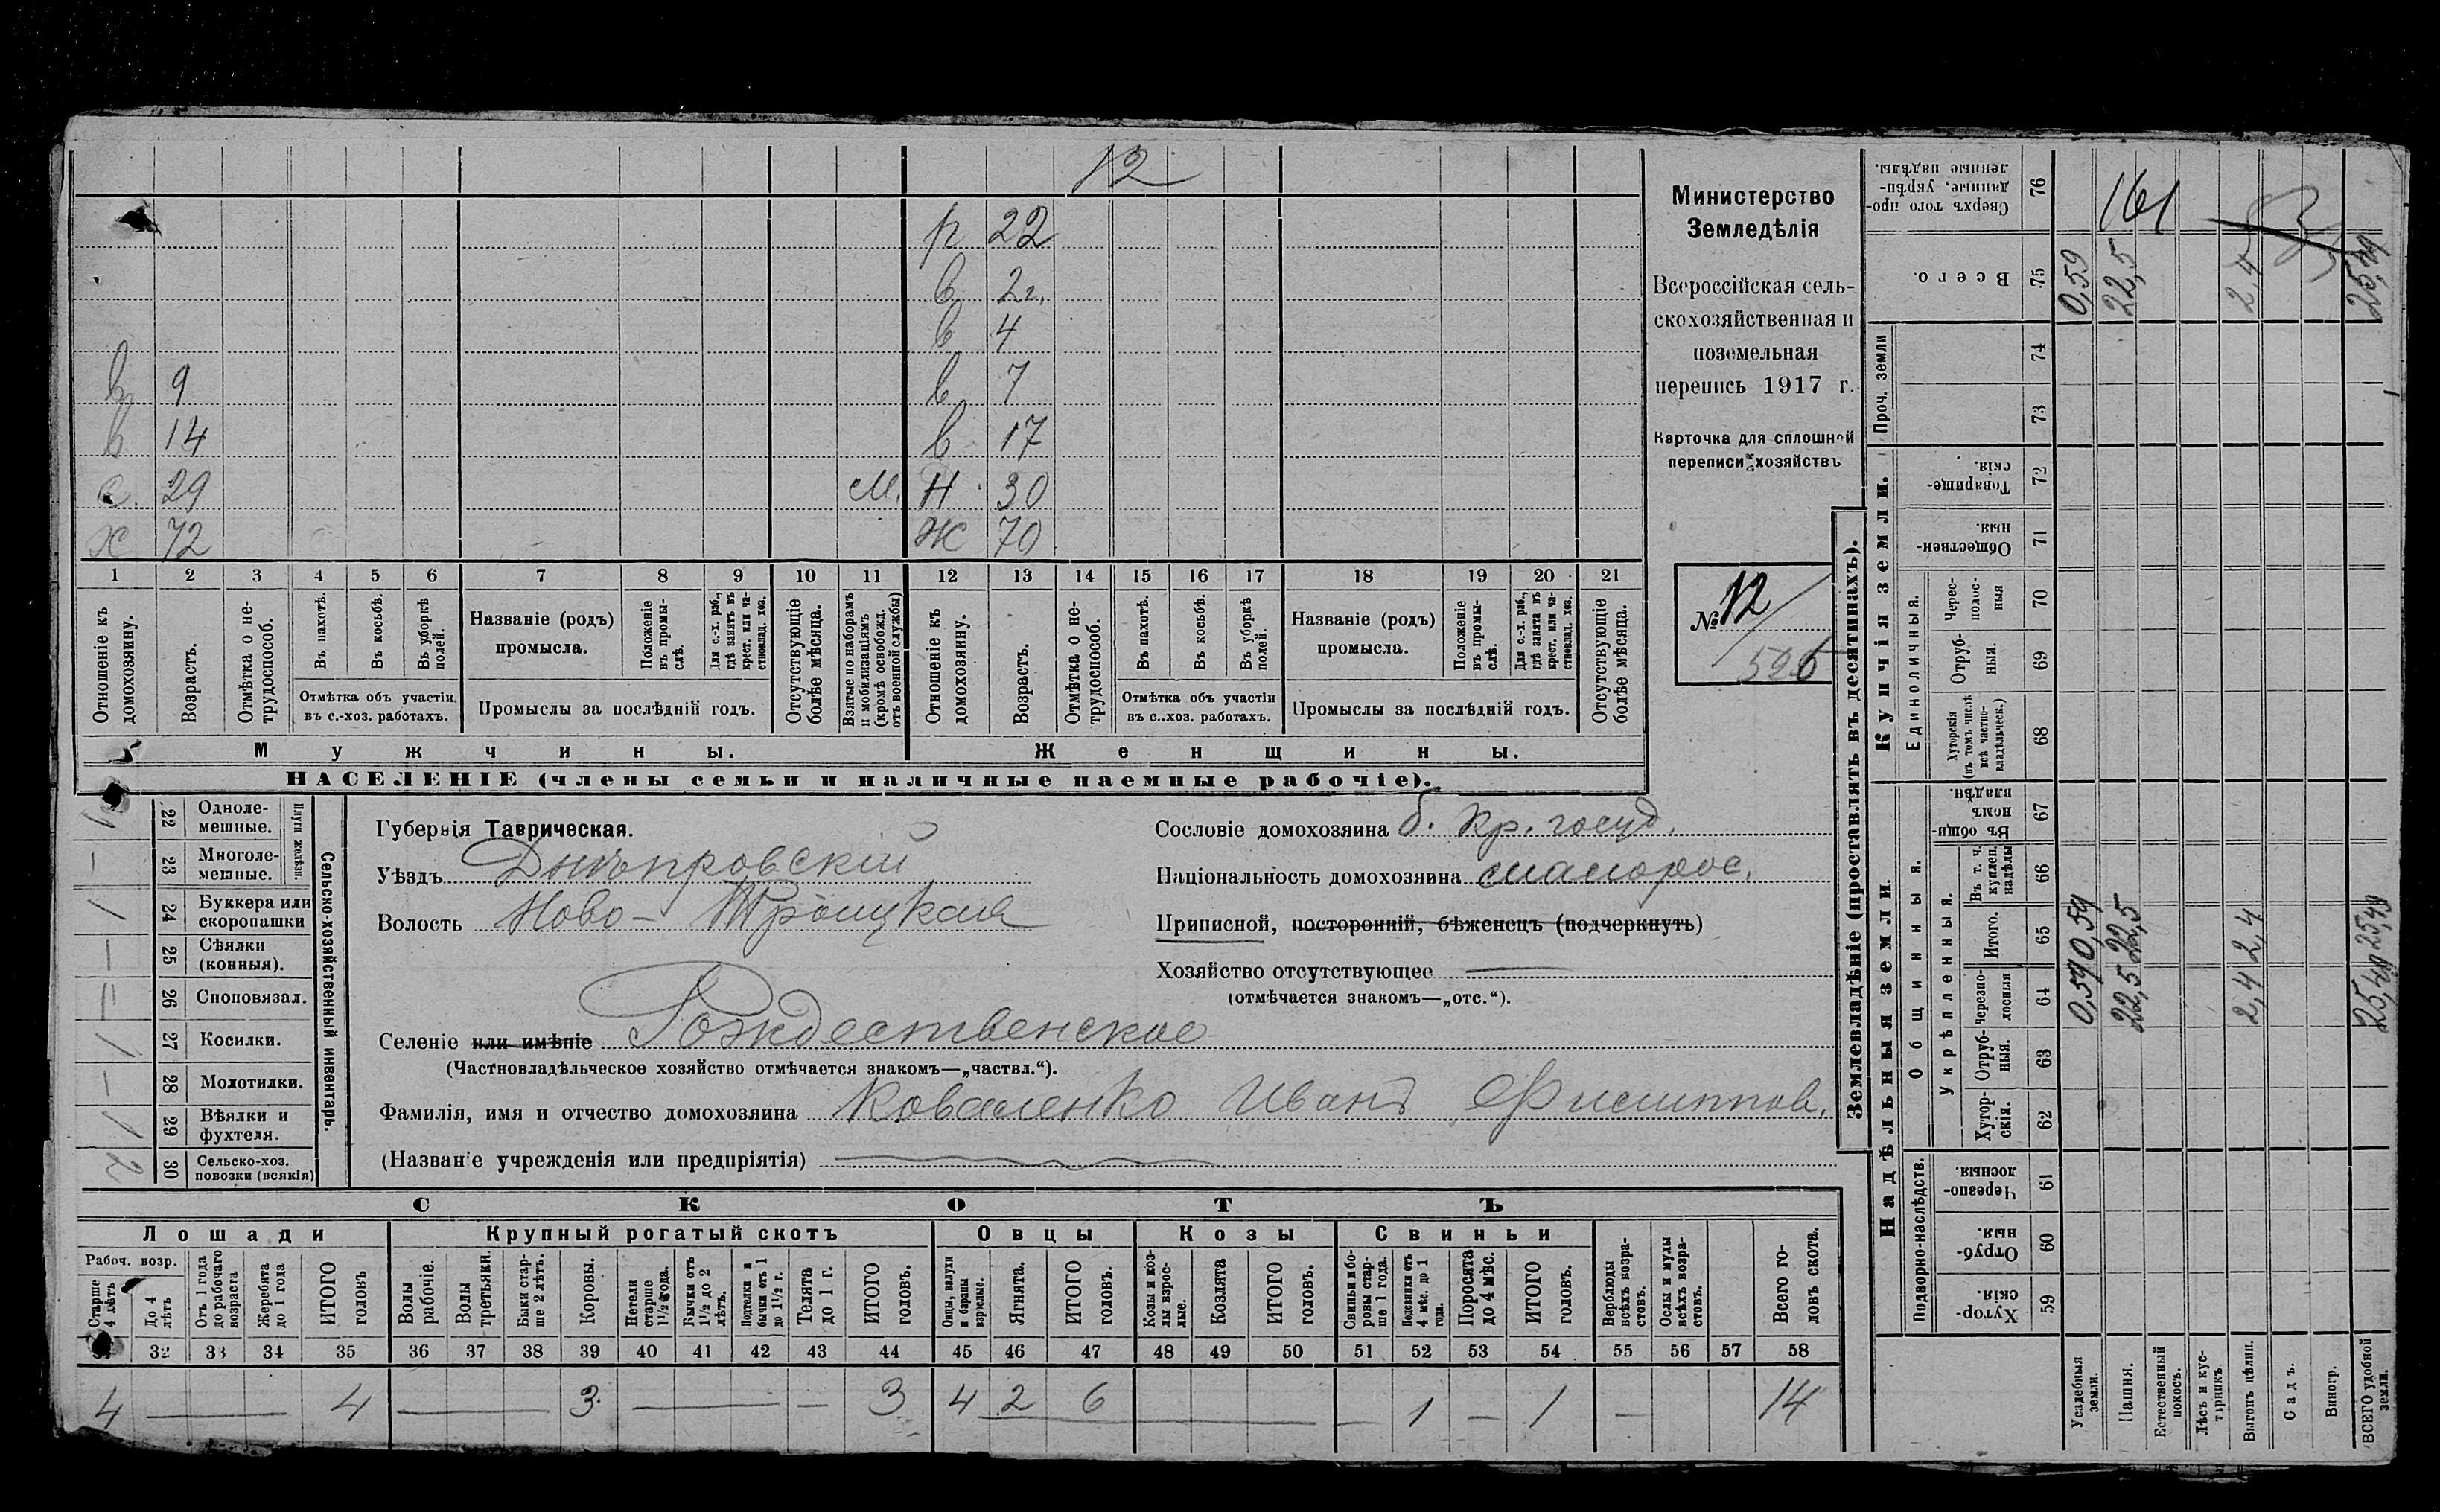 12
р 22
в 2г.
в 4
в 9 в 7
в 14 в 17
с. 29 М. Н 30
х 72 Ж 70
1 2 3 4 5 6 7 8 9 10 11 12 13 14 15 16 17 18 19 20 21
Отношеніе къ домохозяину.
Возрастъ.
Отмѣтка о не-трудоспособ.
Въ пахотѣ.
Въ косьбѣ.
Въ уборкѣ полей.
Отмѣтка объ участіи въ с.-хоз. работахъ.
Названіе (родъ) промысла.
Положеніе въ промы-слѣ.
Для с.-х. раб., гдѣ занятъ въ крест. или ча-стновлад. хоз.
Промыслы за послѣдній годъ.
Отсутствующіе болѣе мѣсяца.
Взятые по наборамъ и мобилизаціямъ (кромѣ освобожд. отъ военной службы)
Отношеніе къ домохозяину.
Возрастъ.
Отмѣтка о не-трудоспособ.
Въ пахотѣ.
Въ косьбѣ.
Въ уборкѣ полей.
Отмѣтка объ участіи въ с..хоз. работахъ.
Названіе (родъ) промысла.
Положеніе въ промы-слѣ.
Для с.-х. раб., гдѣ занята въ крест. или ча-стновлад. хоз.
Промыслы за послѣдній годъ.
Отсутствующіе болѣе мѣсяца.
5 Мужчины. Женщины.
НАСЕЛЕНІЕ (члены семьи и наличные наемные рабочіе).
Министерство
Земледѣлія
Всероссійская сель-
скохозяйственная и
поземельная
перепись 1917 г.
Карточка для сплошной
переписи хозяйствъ
№ 12
526
Сельско-хозяйственный инвентарь.
Плуги желѣзн.
22 Одноле-мешные. 1
23 Многоле-мешные. —
24 Буккера или скоропашки 1
25 Сѣялки (конныя). —
26 Сноповязал.
27 Косилки. 1
28 Молотилки. —
29 Вѣялки и фухтеля. 1
30 Сельско-хоз. повозки (всякія) 2
Губернія Таврическая.
Уѣздъ Днѣпровскій
Волость Ново-Троицкая
Сословіе домохозяина б. кр. госуд.
Національность домохозяина малорос.
Приписной, посторонній, бѣженецъ (подчеркнуть)
Хозяйство отсутствующее —
(отмѣчается знакомъ—„отс.“).
Селеніе или имѣніе Рождественское
(Частновладѣльческое хозяйство отмѣчается знакомъ—„частвл.“).
Фамилія, имя и отчество домохозяина Коваленко Иванъ Филиппов.
(Названіе учрежденія или предпріятія)
СКОТЪ
Лошади Крупный рогатый скотъ Овцы Козы Свиньи
Рабоч. возр.
Старше 4 лѣтъ
До 4 лѣтъ
Отъ 1 года до рабочаго возраста
Жеребята до 1 года
ИТОГО головъ
Волы рабочіе.
Волы третьяки.
Быки стар-ше 2 лѣтъ.
Коровы.
Нетели старше 1½ года.
Бычки отъ 1½ до 2 лѣтъ.
Подтелки и бычки отъ 1 до 1½ г.
Телята до 1 г.
ИТОГО головъ.
Овцы, валухи и бараны взрослые.
Ягнята.
ИТОГО головъ.
Козы и коз-лы взрос-лые.
Козлята
ИТОГО головъ.
Свиньи и бо-ровы стар-ше 1 года.
Подсвинки отъ 4 мѣс. до 1 года.
Поросята до 4 мѣс.
ИТОГО головъ.
Верблюды всѣхъ возра-стовъ.
Ослы и мулы всѣхъ возра-стовъ.
Всего го-ловъ скота.
32 33 34 35 36 37 38 39 40 41 42 43 44 45 46 47 48 49 50 51 52 53 54 55 56 57 58
4 — 4 — 3. — — 3 4 2 6 — — 1 — 1 — 14
Землевладѣніе (проставлять въ десятинахъ).
Купчія земли.
Надѣльныя земли.
Сверхъ того про-данные, укрѣп-ленные надѣлы. 76
Всего. 75
Проч. земли 74 73
Товарище-скія. 72
Обществен-ныя. 71
Единоличныя.
Черес-полос-ныя 70
Отруб-ныя. 69
Хуторскія (въ томъ числѣ всѣ частно-владѣльческ.) 68
Общинныя.
Въ общин-номъ владѣн. 67
Укрѣпленныя.
Въ т. ч. куплен. надѣлы 66
Итого. 65
Черезпо-лосныя 64
Отруб-ныя. 63
Хутор-скія. 62
Подворно-наслѣдств.
Черезпо-лосныя. 61
Отруб-ныя. 60
Хутор-скія. 59
161
0,59 22,5 2,4 25,49
0,59 22,5 2,4 25,49
0,59 22,5 2,4 25,49
Усадебныя земли.
Пашня.
Естественный покосъ.
Лѣсъ и кус-тарникъ.
Выгонъ цѣлин.
Садъ.
Виногр.
ВСЕГО удобной земли.